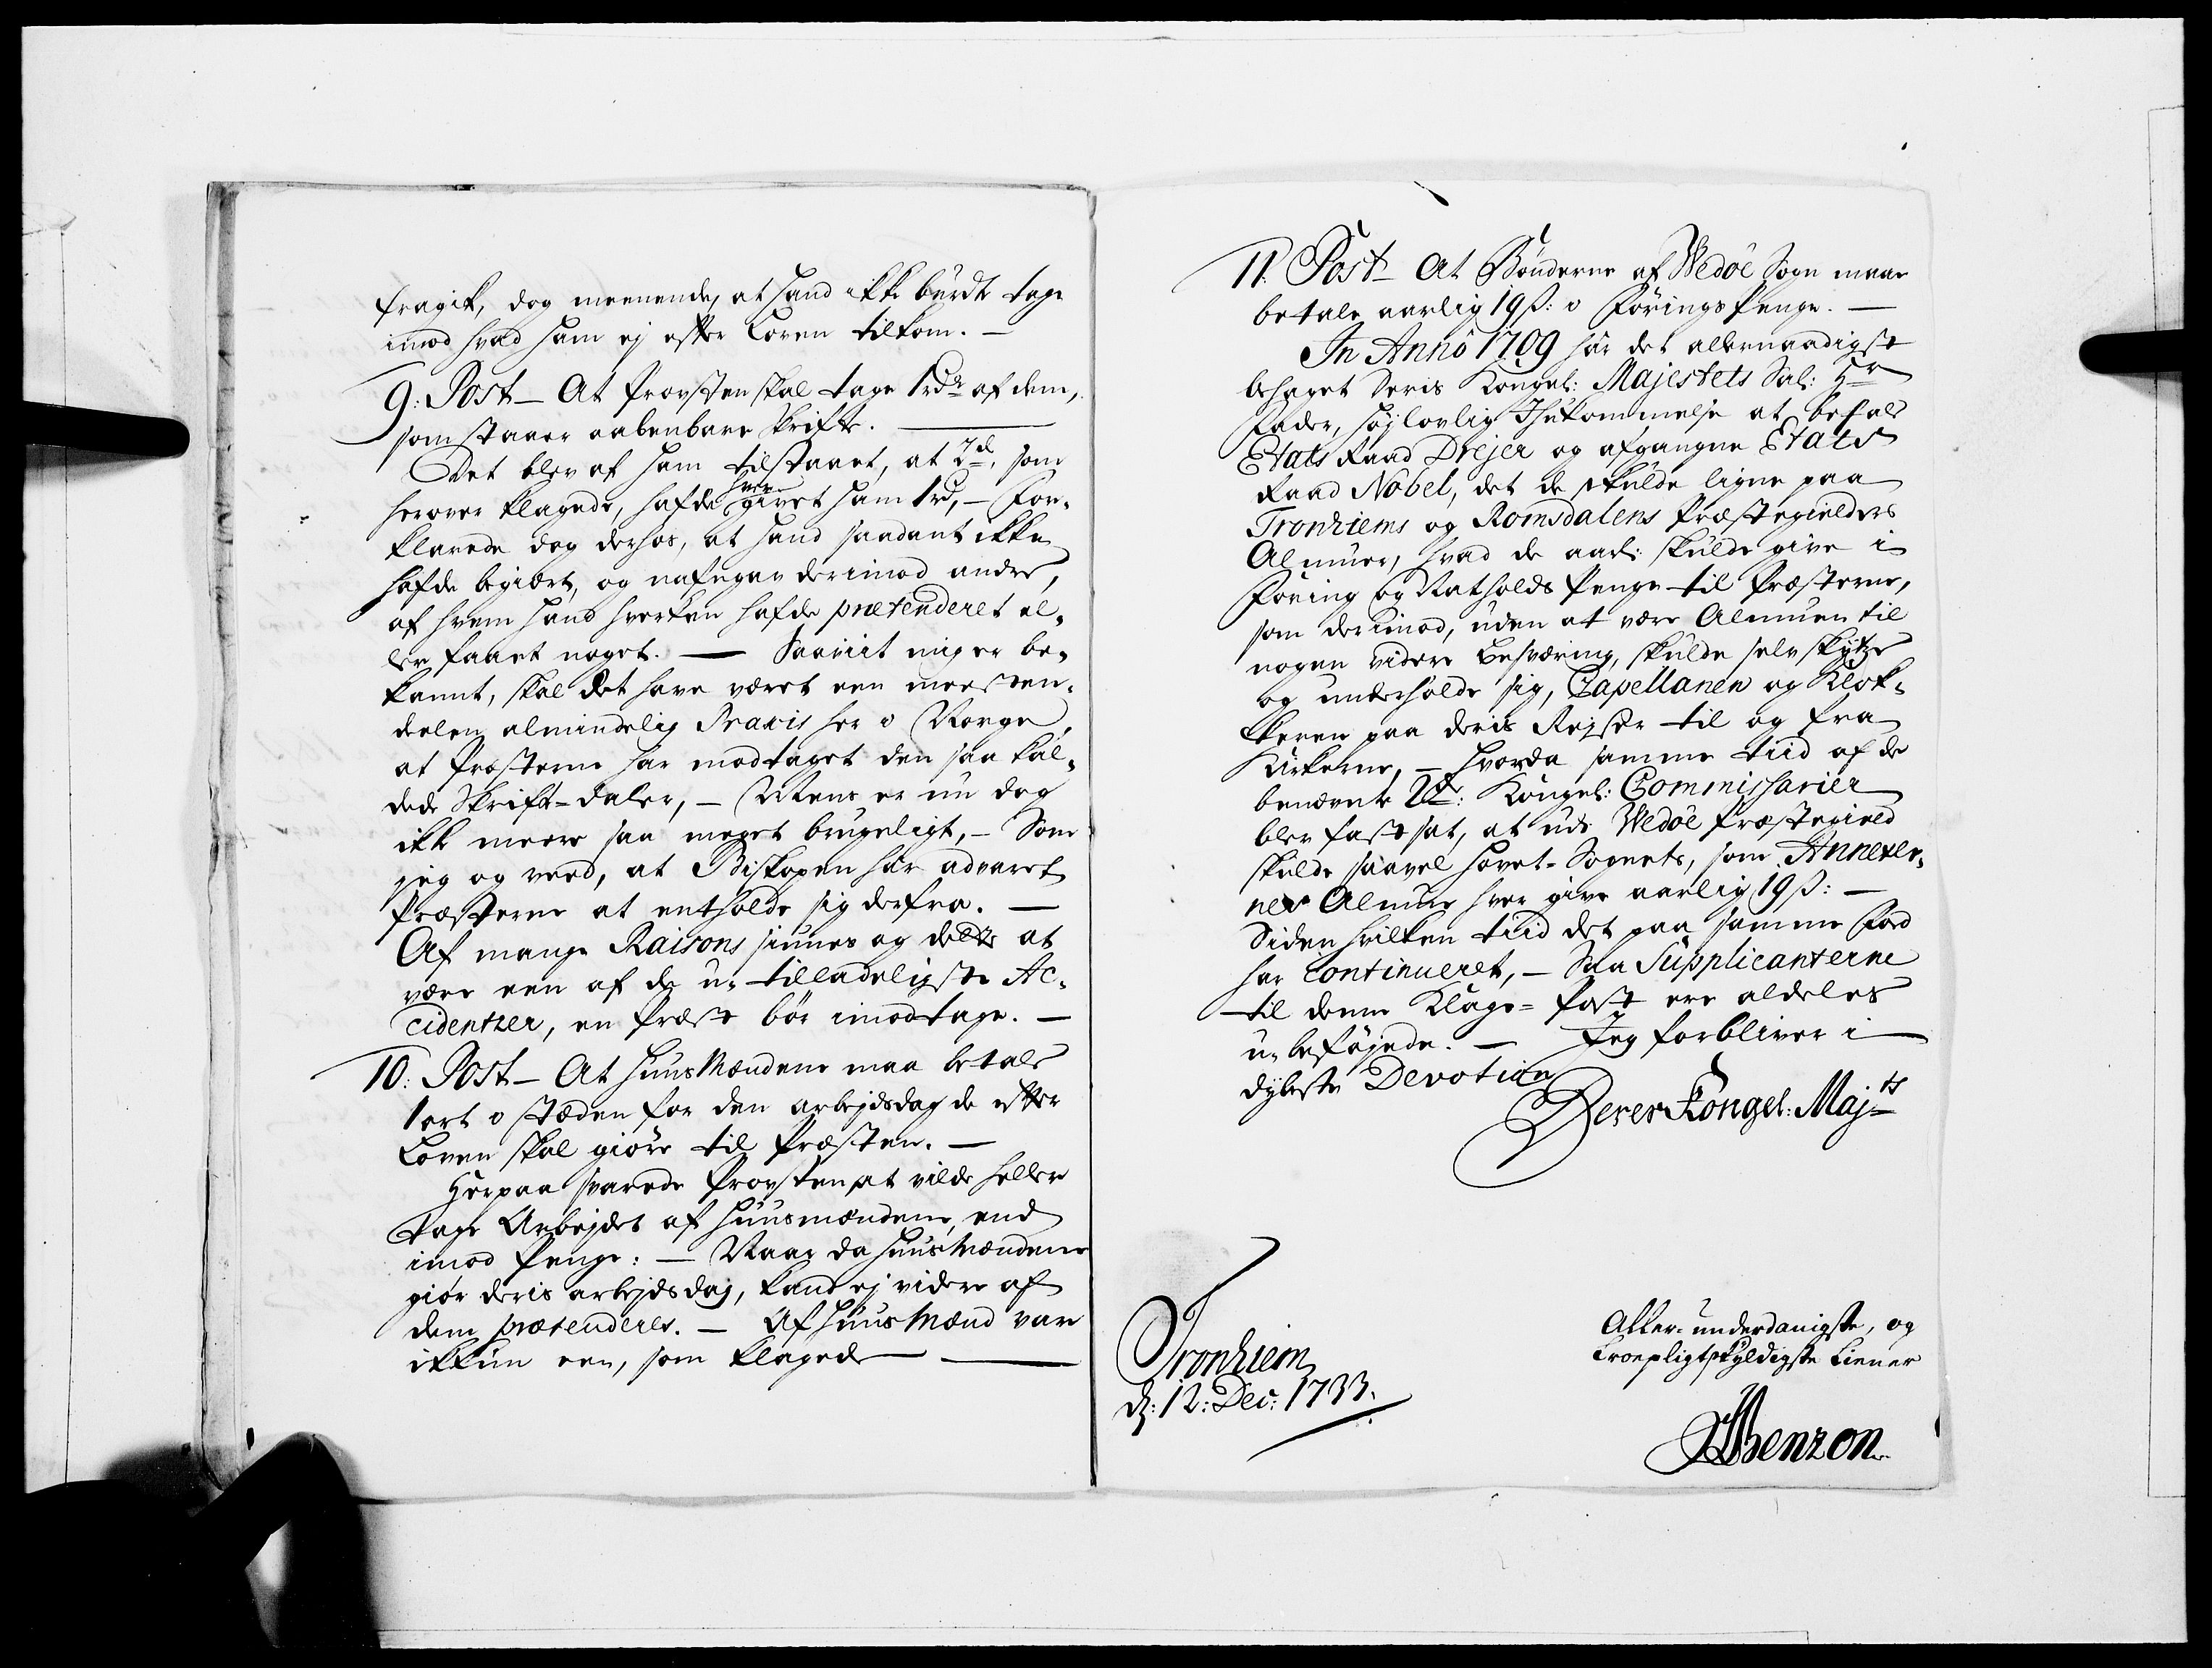 fragik, dog meenende, at hand ikke burdte tage
imod hvad ham ej efter Loven tilkom. —
9: Post — At Provsten skal tage 1 rdr af dem,
som staaer aabenbare Skrifte. —
Det blev af ham tilstaaet, at 2de, som
herover klagede, hafde hver givet ham 1 rd, — For-
klarede dog derhos, at hand saadant ikke
hafde begiært, og nafngav derimod andre,
af hvem hand hverken hafde prætenderet el-
ler faaet noget. — Saaviit mig er be-
kannt, skal det have været een meesten-
deelen almindelig Praxis her i Norge,
at Præsterne har modtaget den saa kal-
dede Skrift-daler, — Mens er nu dog
ikke meere saa meget brugeligt, — Som
jeg og veed, at Biskopen har advaret
Præsterne at entholde sig derfra. —
Af mange Raisons siunes og dette at
være een af de u-tilladeligste Ac-
cidentzer, en Præst bör imodtage. —
10: Post — At HuusMændene maa betale
1 ort i stæden for den arbejdsdag de efter
Loven skal giöre til Præsten. —
Herpaa svarede Provsten, at vilde heller
tage Arbejdet af Huusmændene, end
imod Penge: — Naar da HuusMændene
giör deris arbejdsdag, kand ej videre af
dem prætenderes. — Af HuusMænd var
ikkun een, som klagede —
11. Post — At Bönderne af Wedöe Sogn maae
betale aarlig 19 ß: i Förings Penge. —
In Anno 1709 har det allernaadigst
behaget Deris Kongel: Majestets Sal: Hr
Fader, höjlovlig Ihukommelse at befale
Etats Raad Drejer og afgangne Etats
Raad Nobel, det de skulde ligne paa
Tronhiems og Romsdalens Præstegields
Almuer, hvad de aarl: skulde give i
Föring og Natholds Penge til Præsterne,
som derimod, uden at være Almuen til
nogen videre Besværing, skulde selv skydtze
og underholde sig, Capellanen og Klok-
keren paa deris Rejser til og fra
Kirkerne, — hvorda samme tiid af de
benævnte 2de: Kongel: Commissarier
blev fastsat, at udi Wedöe Præstegield
skulde saavel Hovet-Sognets, som Annexer-
nes Almue hver give aarlig 19 ß: —
Siden hvilken tiid det paa samme Fod
har Continueret, — Saa Supplicanterne
til denne Klage-Post ere aldeles
u-beföjede. — Jeg forbliver i
dybeste Devotion
Deres Kongel: Majts
Aller-underdanigste, og
troepligtskyldigste tiener
Tronhiem
d: 12: Dec: 1733.
Benzon